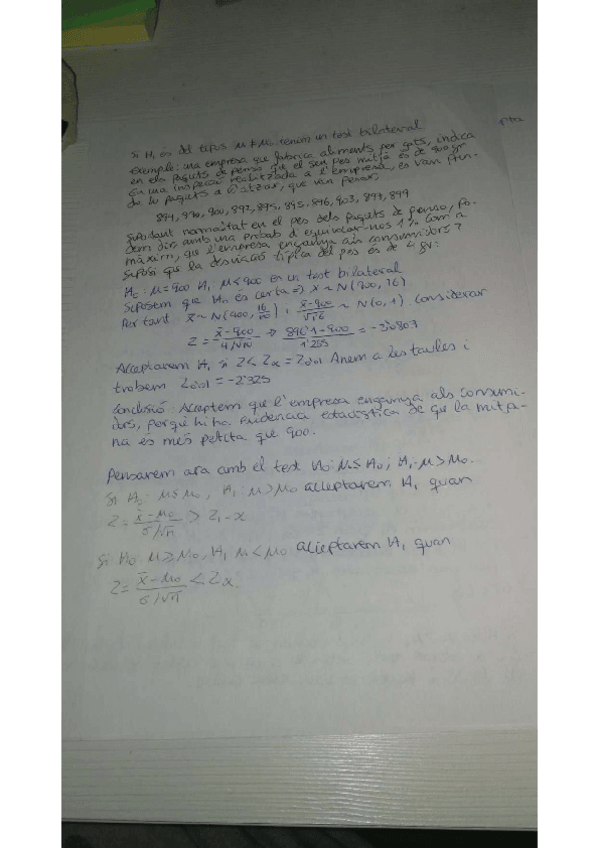 Si H₁ és del tipus μ ≠ μ₀ tenim un test bilateral
Exemple: una empresa que fabrica aliments per gats, indica
en els paquets de penso que el seu pes mitjà és de 900gr
En una inspecció realitzada a l'empresa, es van pren-
dre 10 paquets a l'atzar, que van pesar:
894, 900, 892, 895, 895, 896, 903, 899, 899
Suposant normalitat en el pes dels paquets de penso, po-
dem dir, amb una probab d'equivocar-nos 1% com a
màxim, que l'empresa enganya als consumidors?
Suposi que la desviació típica del pes és de 4 gr:
H₀: μ = 900 H₁: μ < 900 és un test bilateral
Suposem que H₀ és certa => X ~ N(900, 16)
Per tant x̄ ~ N(900, 16/10) ; x̄-900/√1'6 ~ N(0,1). Considerar
Z = x̄-900/4/√10 => 896'1-900/1'265 =
Acceptarem H₁ si Z < Zα = Z0'01 Anem a les taules i
trobem Z0'01 = -2'325
Conclusió: Acceptem que l'empresa enganya als consumi-
dors, perquè hi ha evidència estadística de que la mitja-
na és més petita que 900.
Pensarem ara amb el test H₀: μ ≤ μ₀; H₁: μ > μ₀.
Si H₀: μ ≤ μ₀, H₁: μ > μ₀ acceptarem H₁ quan
Z = x̄-μ₀/σ/√n > Z1-α
Si H₀: μ ≥ μ₀, H₁ μ < μ₀ acceptarem H₁ quan
Z = x̄-μ₀/σ/√n < Zα.